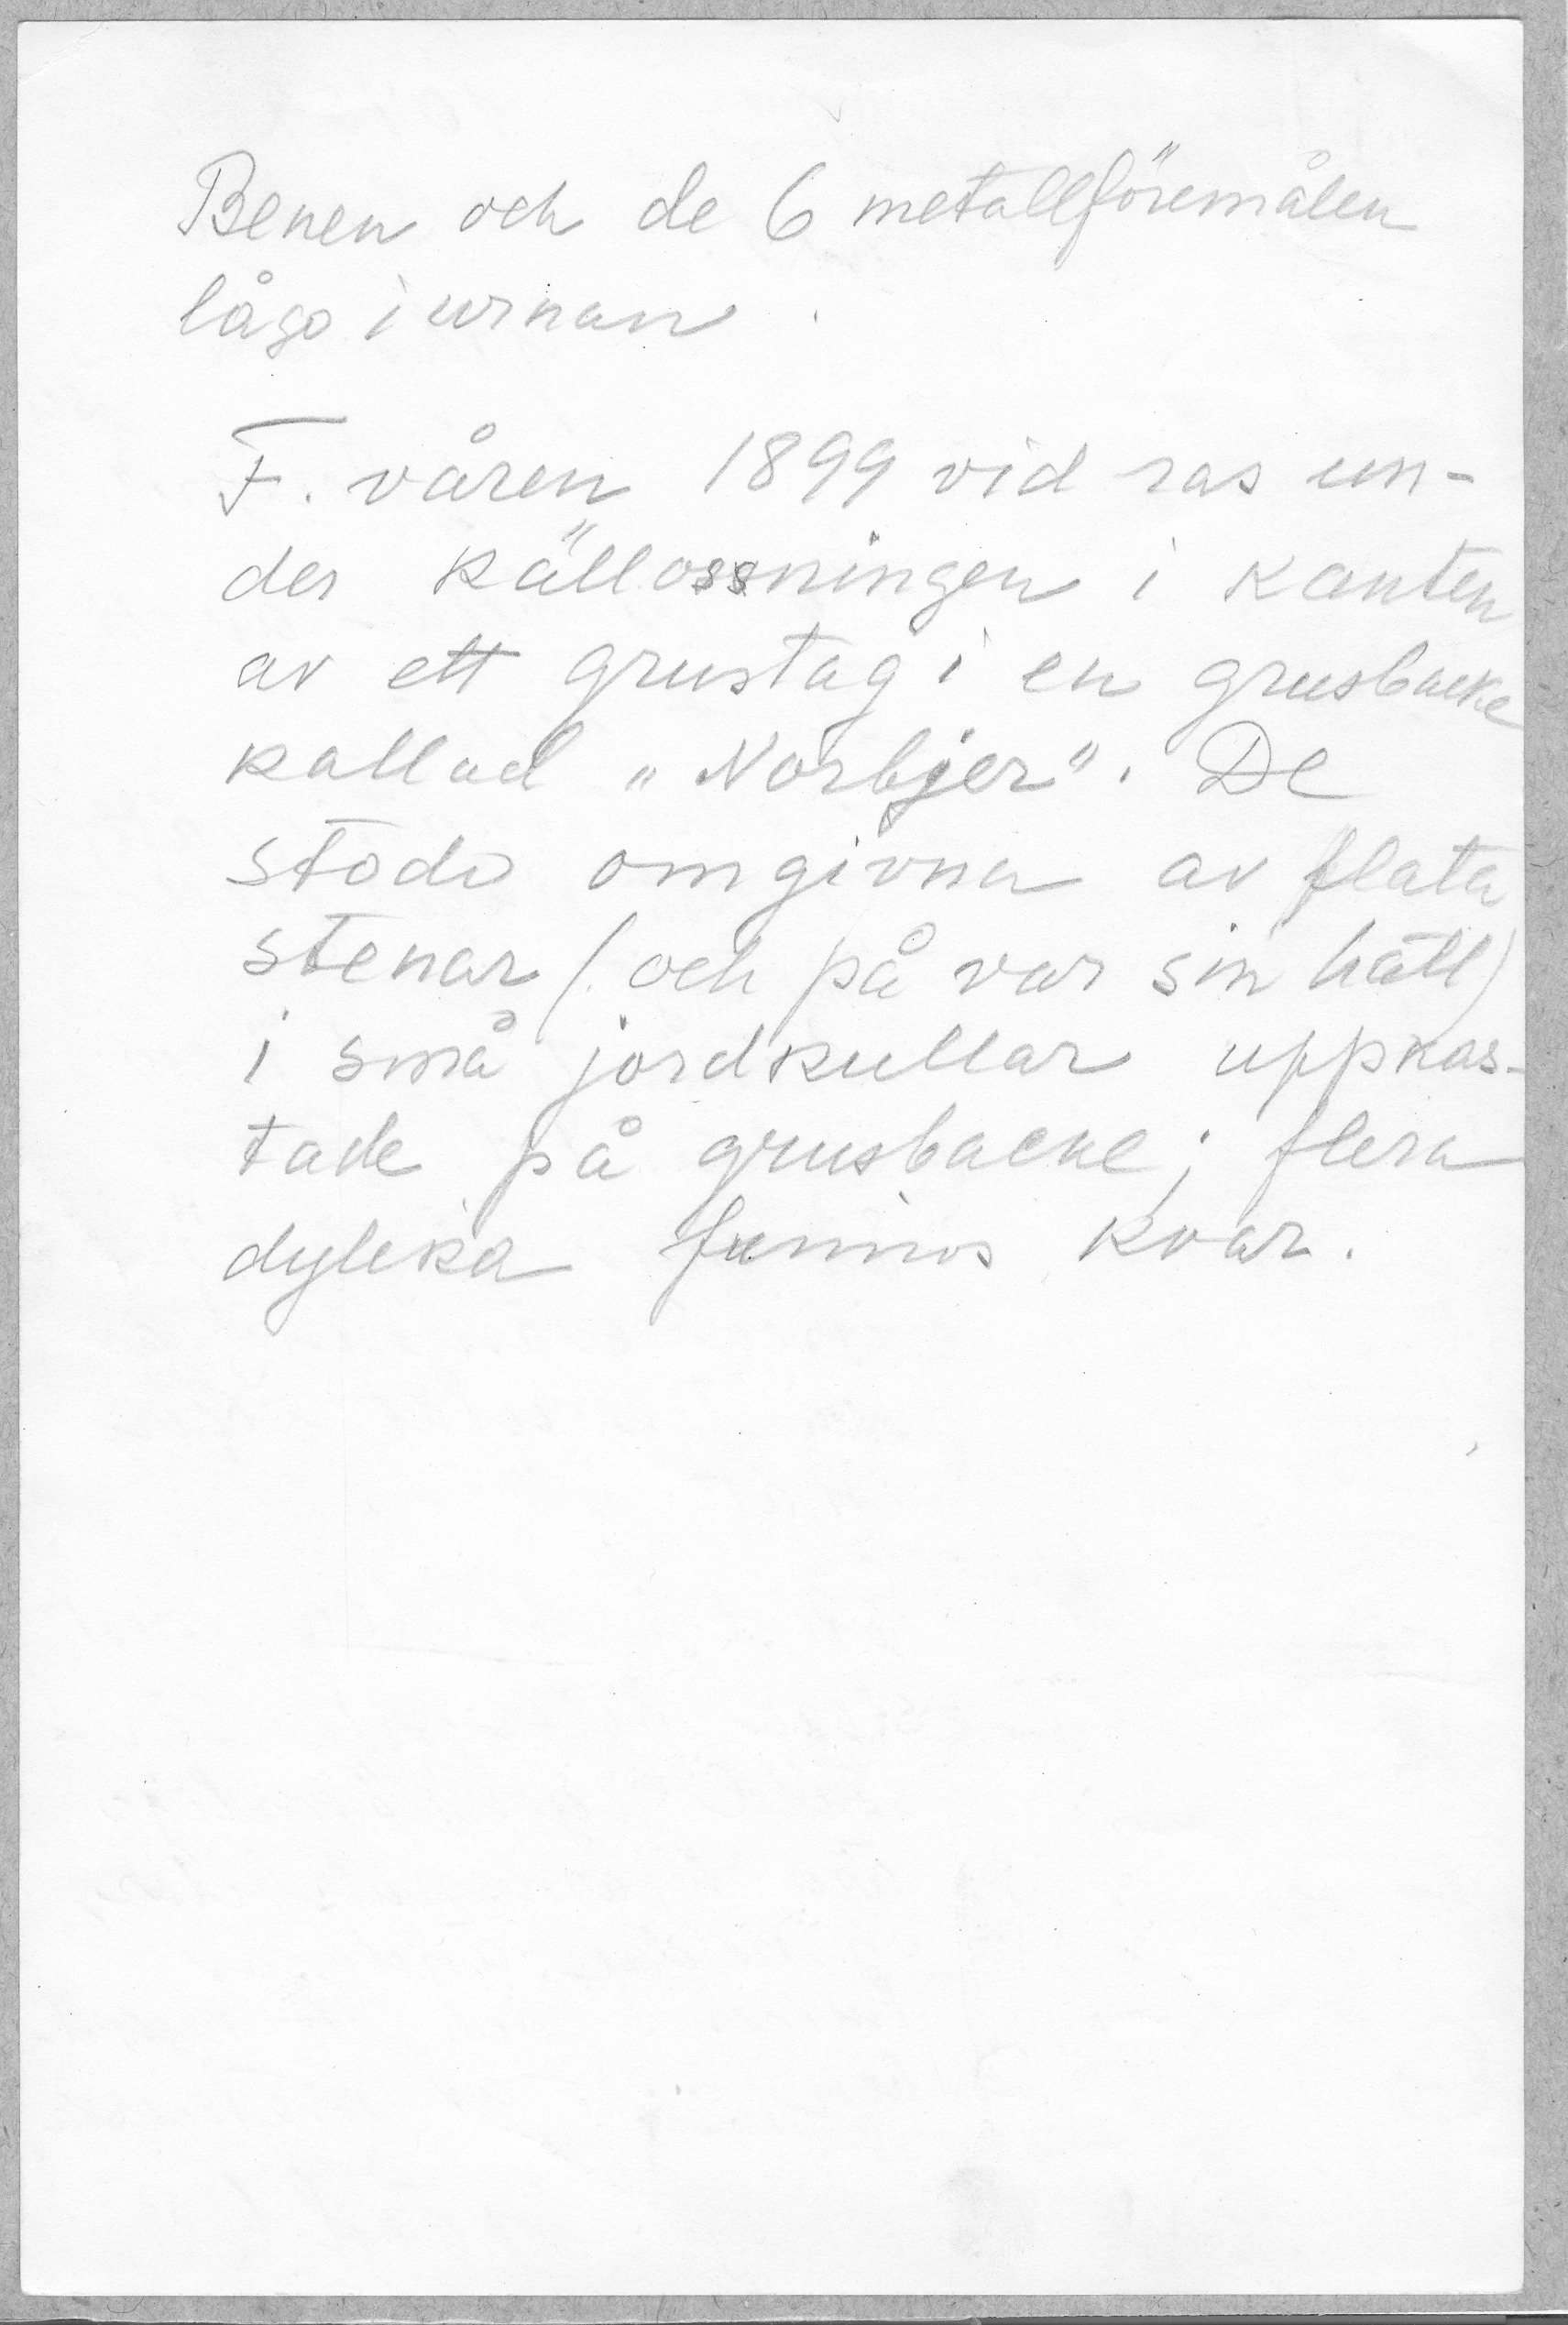 Benen och de 6 metallföremålen
lågo i urnan.
F. våren 1899 vid ras un-
der källossningen i kanten
av ett grustag i en grusbacke
kallad "Norbjer". De
stodo omgivna av flata
stenar (och på var sin häll)
i små jordkullar uppkas-
tade på grusbacke; flera
dylika funnos kvar.